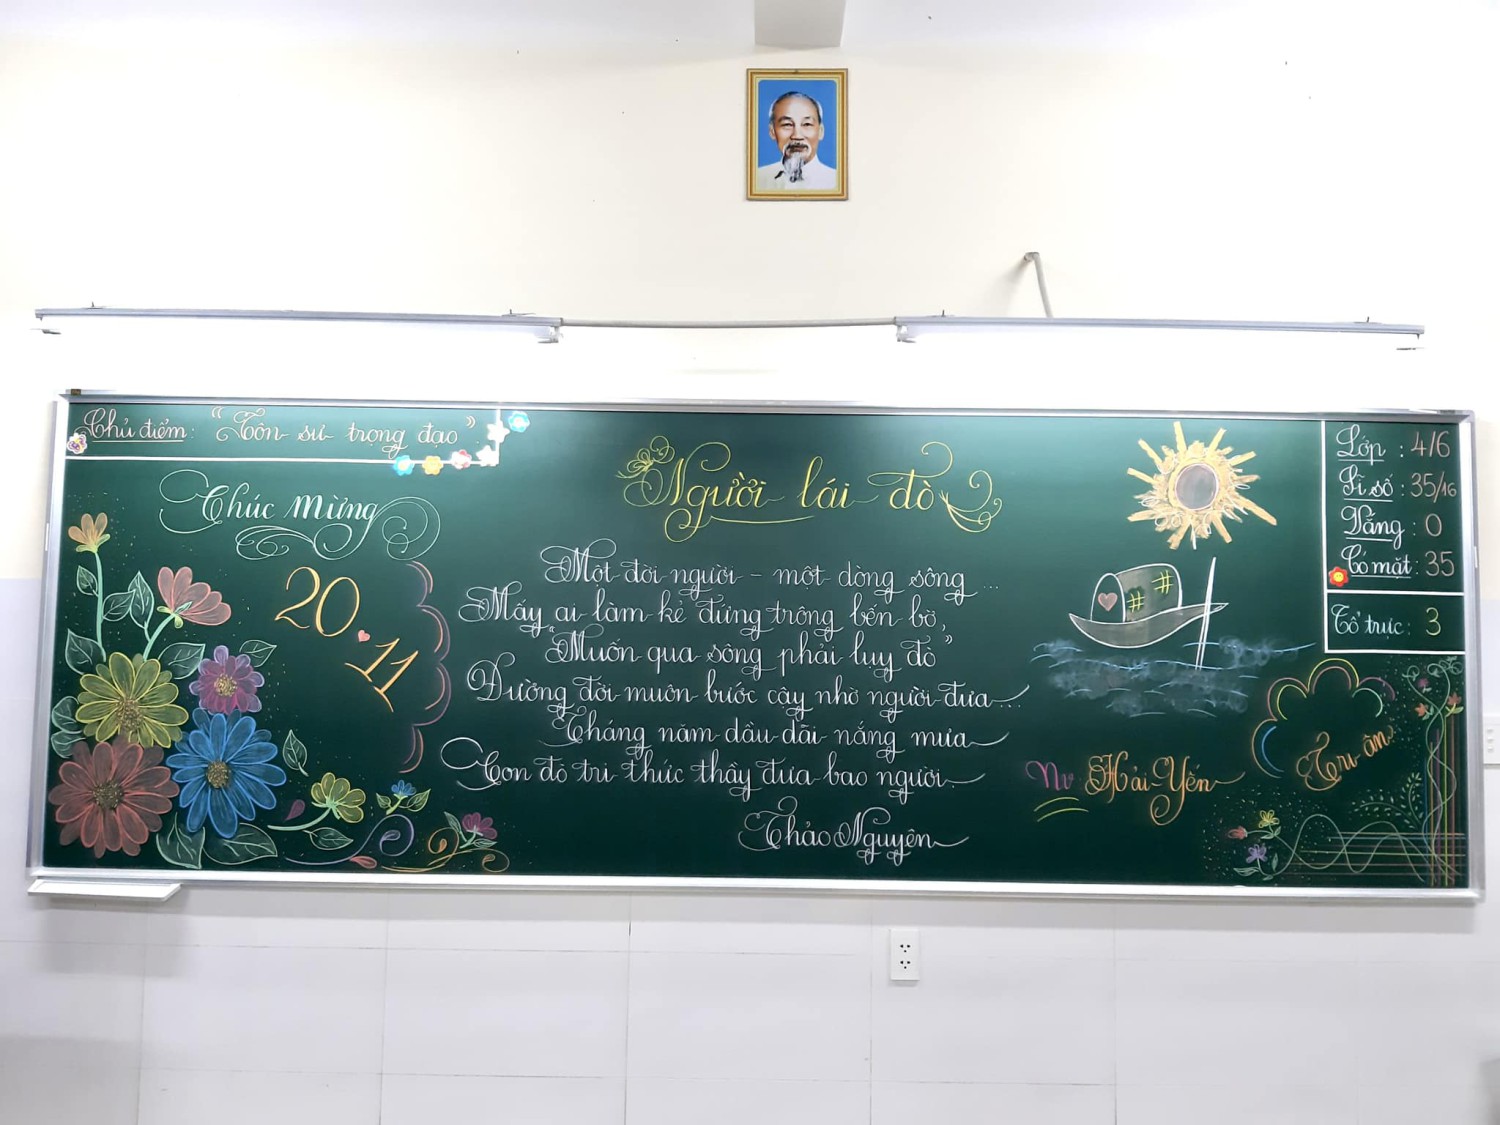 Chủ điểm: "Tôn sư trọng đạo"
Chúc mừng
20.11
Người lái đò
Một đời người - một dòng sông...
Mấy ai làm kẻ đứng trông bến bờ,
"Muốn qua sông phải lụy đò"
Đường đời muôn bước cậy nhờ người đưa...
Tháng năm dầu dãi nắng mưa
Con đò tri thức thầy đưa bao người.
Thảo Nguyên
Lớp : 4/6
Sĩ số : 35/16
Vắng : 0
Có mặt : 35
Tổ trực : 3
Nv Hải Yến
Tri ân